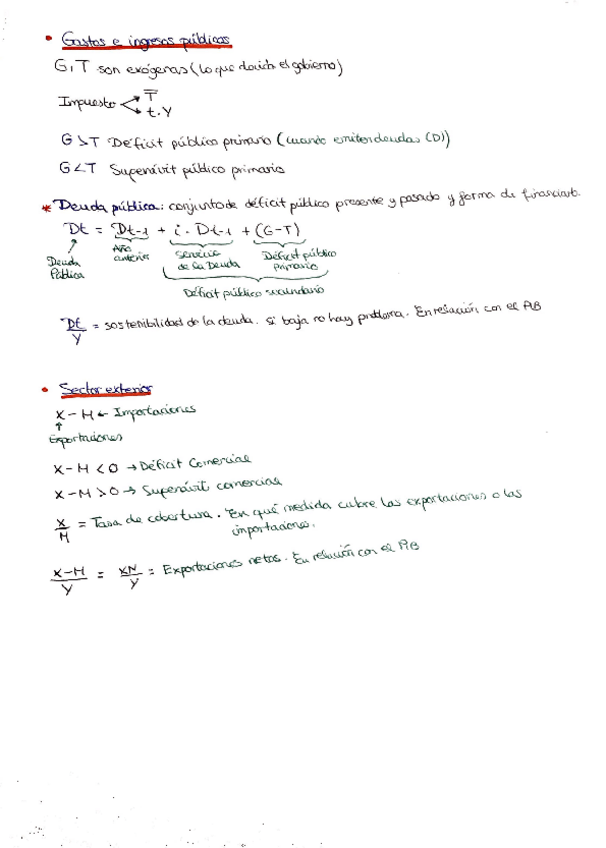 • Gastos e ingresos públicos
G, T son exógenas (lo que decide el gobierno)
Impuesto < T̅
t.Y
G > T Déficit público primario (cuando emiten deudas (D))
G < T Superávit público primario
* Deuda pública: conjunto de déficit público presente y pasado y forma de financiarlo.
Dt = Dt-1 + i · Dt-1 + (G-T)
Deuda Pública
Año anterior
Servicio de la Deuda
Déficit público primario
Déficit público secundario
Dt/Y = sostenibilidad de la deuda. Si baja no hay problema. En relación con el PIB
• Sector exterior
X - M ← Importaciones
↑
Exportaciones
X - M < 0 → Déficit Comercial
X - M > 0 → Superávit comercial
X/M = Tasa de cobertura. En qué medida cubre las exportaciones a las
importaciones.
X-M/Y = XN/Y = Exportaciones netas. En relación con el PIB